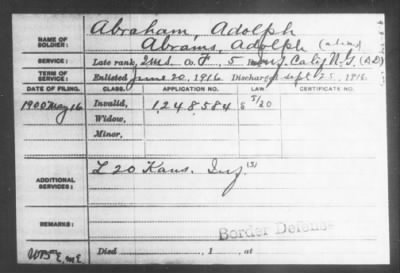 Abraham, Adolph
NAME OF SOLDIER: Abrams, Adolph (alias)
SERVICE: Late rank, Co. F, 5 Calif N.G. (A.D.)
TERM OF SERVICE: Enlisted June 20, 1916 Discharged Sept 25, 1916
DATE OF FILING. CLASS. APPLICATION NO. LAW CERTIFICATE NO.
1900 May 16 Invalid, 1,248,584
Widow,
Minor,
ADDITIONAL SERVICES: L 20 Kans. Inf.
REMARKS: Border Defense
Died , 1 , at